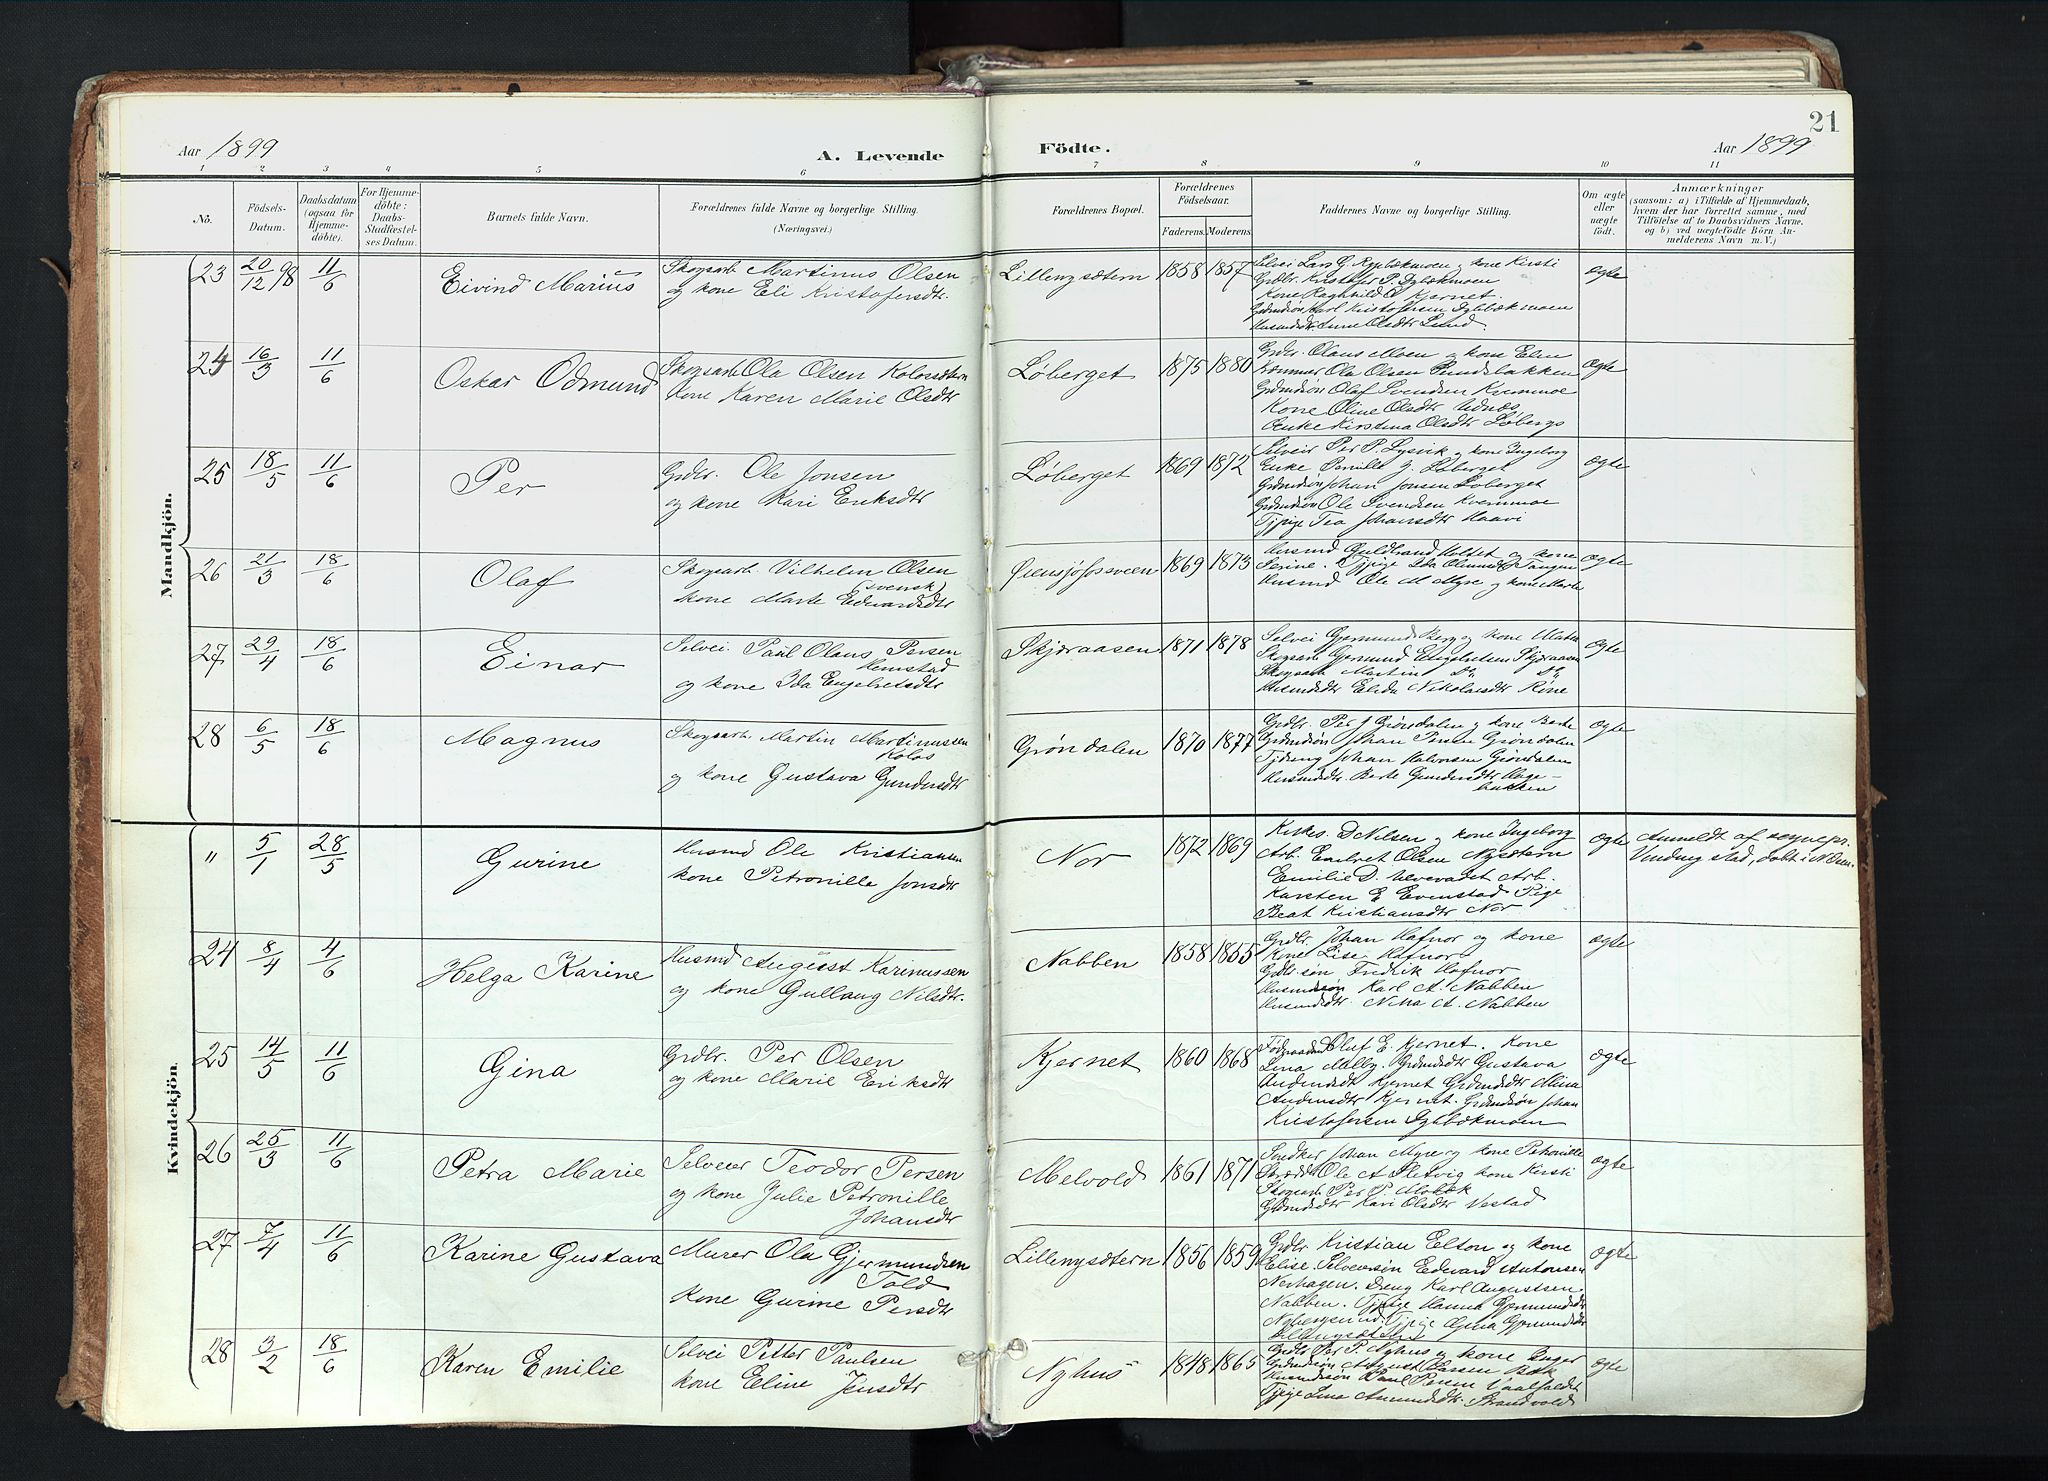 21
Aar 1899
A. Levende
Födte.
Aar 1899
1 2 3 4 5 6 7 8 9 10 11
No.
Födsels-
Datum.
Daabsdatum
(ogsaa for
Hjemme-
döbte).
For Hjemme-
döbte:
Daabs-
Stadfæstel-
ses Datum.
Barnets fulde Navn.
Forældrenes fulde Navne og borgerlige Stilling.
(Næringsvei.)
Forældrenes Bopæl.
Forældrenes
Födselsaar.
Faderens. Moderens.
Faddernes Navne og borgerlige Stilling.
Om ægte
eller
uægte
födt.
Anmærkninger
(saasom: a) i Tilfælde af Hjemmedaab,
hvem der har forrettet samme, med
Tilföielse af to Daabsvidners Navne,
og b) ved uægtefödte Börn An-
melderens Navn m. V.)
Mandkjön.
23 20/12 98 11/6 Eivind Marius
Skogsarb. Martinus Olsen
og kone Eli Kristofersdtr.
Lillenysætern 1858 1857
Selvei Lars G. Rypbækmoen og kone Kirsti
Grdbr. Kristofer P. Dypbækmoen
Kone Raghnild O. Kjernet.
Grdmdsön Karl Kristofersen Dypbækmoen
Husmdsdtr. Anne Olsdtr Lund.
ægte
24 16/3 11/6 Oskar Odmund
Skogsarb Ola Olsen Kolossætern
kone Karen Marie Olsdtr
Løberget 1875 1880
Grdbr. Olaus Moen og kone Elen
Ola Olsen Sundsbakken
Grdmdsön Olaf Svendsen Kvemmoe
Kone Oline Olsdtr Udnæs
Enke Kirstina Olsdtr Løberg
ægte
25 18/5 11/6 Per
Grdbr. Ole Jonsen
og kone Kari Eriksdtr
Løberget 1869 1872
Selveir Per P. Lysvik og kone Ingeborg
Enke Pernille J. Løberget
Grdmdsön Johan Jonsen Løberget
Grdmdsön Ole Svendsen Kvemmoe
Tjpige Tea Johansdtr Haavi
ægte
26 21/3 18/6 Olaf
Skogsarb. Vilhelm Olsen
(svensk)
kone Marte Edvardsdtr
Ørensjøfossveen 1869 1873
Husmd Guldbrand Holtet og kone
Serine. Tjpige Ida Tangen
Husmd Ole M Myre og kone Marte
ægte
27 29/4 18/6 Einar
Selvei. Paul Olaus Persen
Hemstad
og kone Ida Engebretsdtr
Skjæraasen 1871 1878
Selvei Gjermund Berg og kone Maten
Skogsarb Gjermund Engebretsen Skjæraasen
Skogsarb Martin Do. Do.
Husmdsdtr Elida Nikolaisdtr Rine
ægte
28 6/5 18/6 Magnus
Skogsarb Martin Martinussen
Kolos
og kone Gustava Gundersdtr
Grøndalen 1870 1877
Grdbr. Per J Grøndalen og kone Berte
Grdmdsön Johan Persen Grøndalen
Tjdreng Johan Halvorsen Grøndalen
Husmdsdtr. Berte Gundersdtr Hage-
bakken
ægte
Kvindekjön.
" 5/1 28/5 Gurine
Husmd Ole Kristiansen
kone Petronille Jonsdtr
Nor 1872 1869
Kirkes. D Nilsen og kone Ingeborg
Arb. Embret Olsen Nysætern
Emilie D. Arb.
Karsten E Evenstad Pige
Beat Kristiansdtr Nor
ægte
Anmeldt af sognepr.
Vendung stad, döbt i
24 8/4 4/6 Helga Karine
Husmd August Karinussen
og kone Gullaug Nilsdtr.
Nabben 1858 1855
Grdbr. Johan Hafnor og kone
Kone Lise Hafnor
Grdbr.søn Fredrik Hafnor
Husmdssøn Karl A. Nabben
Husmdsdtr. Nina A. Nabben
ægte
25 14/5 11/6 Gina
Grdbr. Per Olsen
og kone Marie Eriksdtr
Kjernet 1860 1868
Føderaadsmd Oluf E. Kjernet. Kone
Lina Melby. Grdmdsdtr Gustava
Andersdtr Kjernet Grdmdsdtr Mina
Andersdtr Kjernet. Grdmdsön Johan
Kristofersen Dypbækmoen
ægte
26 25/3 11/6 Petra Marie
Selveier Teodor Persen
og kone Julie Petronille
Johansdtr
Melvold 1861 1871
Johan Myre og kone Petronille
Ole A Sletvig kone Kirsti
Skogsarb Per P. Mobæk
Grdmdsdtr Kari Olsdtr Vestad
ægte
27 7/4 11/6 Karine Gustava
Murer Ola Gjermundsen
Told
kone Gurine Persdtr
Lillenysætern 1856 1859
Grdbr Kristian Elton og kone
Elise. Selveiersön Edevard Antonsen
Nerhagen. Dreng Karl Augustsen
Nabben. Tjpige Hanna Gjermundsdtr
Nybergsund. Tjpige Gina Gjermundsdtr
Lillenysætern
ægte
28 3/2 18/6 Karen Emilie
Selvei Petter Paulsen
kone Eline Jensdtr
Nyhus 1848 1865
Grdbr Per P. Nyhus og kone Inger
Grdmdsön August Larsen Bæk
Husmdsön Paul Persen Vaalfaldet
Tjpige Lina Amundsdtr. Strandvold
ægte